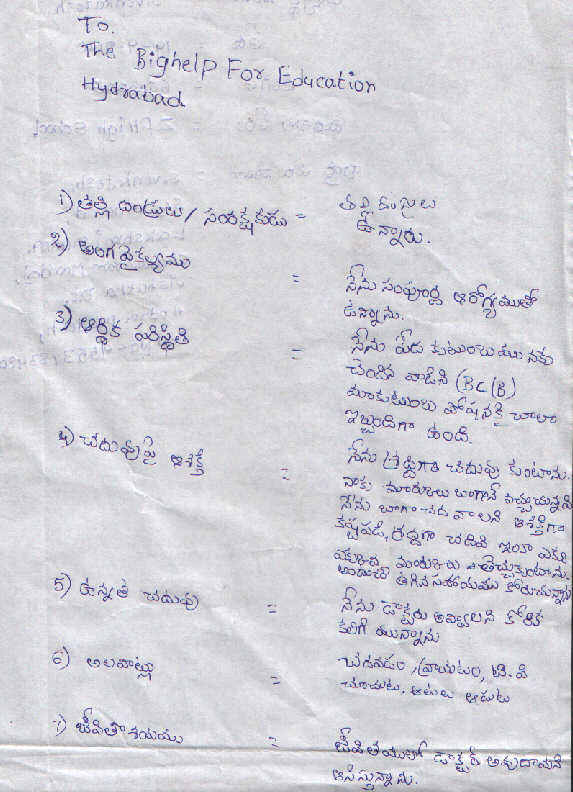 To.
The Bighelp For Education
Hydrabad
1) తల్లి దండ్రులు / సంరక్షకుడు = తల్లిదండ్రులు
ఉన్నారు.
2) అంగవైకల్యము
= నేను సంపూర్ణ ఆరోగ్యముతో
ఉన్నాను.
3) ఆర్థిక పరిస్థితి
= నేను పేద కుటుంబమునకు
చెందిన వాడిని (BC(B)
మాకుటుంబ పోషనకై చాలా
ఇబ్బందిగా ఉంది.
4) చదువుపై ఆశక్తి
= నేను శ్రద్దగా చదువు కుంటాను.
నాకు మార్కులు బాగానే వచ్చుచున్నవి
నేను బాగా చదవాలని ఆశక్తిగా
కష్టపడి, శ్రద్దగా చదివి ఇంకా ఎక్కు
మార్కులు తెచ్చుకుంటాను.
తగిన సహాయము కోరుచున్నాను
5) ఉన్నత చదువు
= నేను డాక్టరు అవ్వాలని కోరిక
కలిగి యున్నాను
6) అలవాట్లు
= చదవడం, వ్రాయటం, టి.వి
చూచుట, ఆటలు ఆడుట
7) జీవితాశయము
= జీవితములో డాక్టర్ అవుదామని
ఆశిస్తున్నాను.